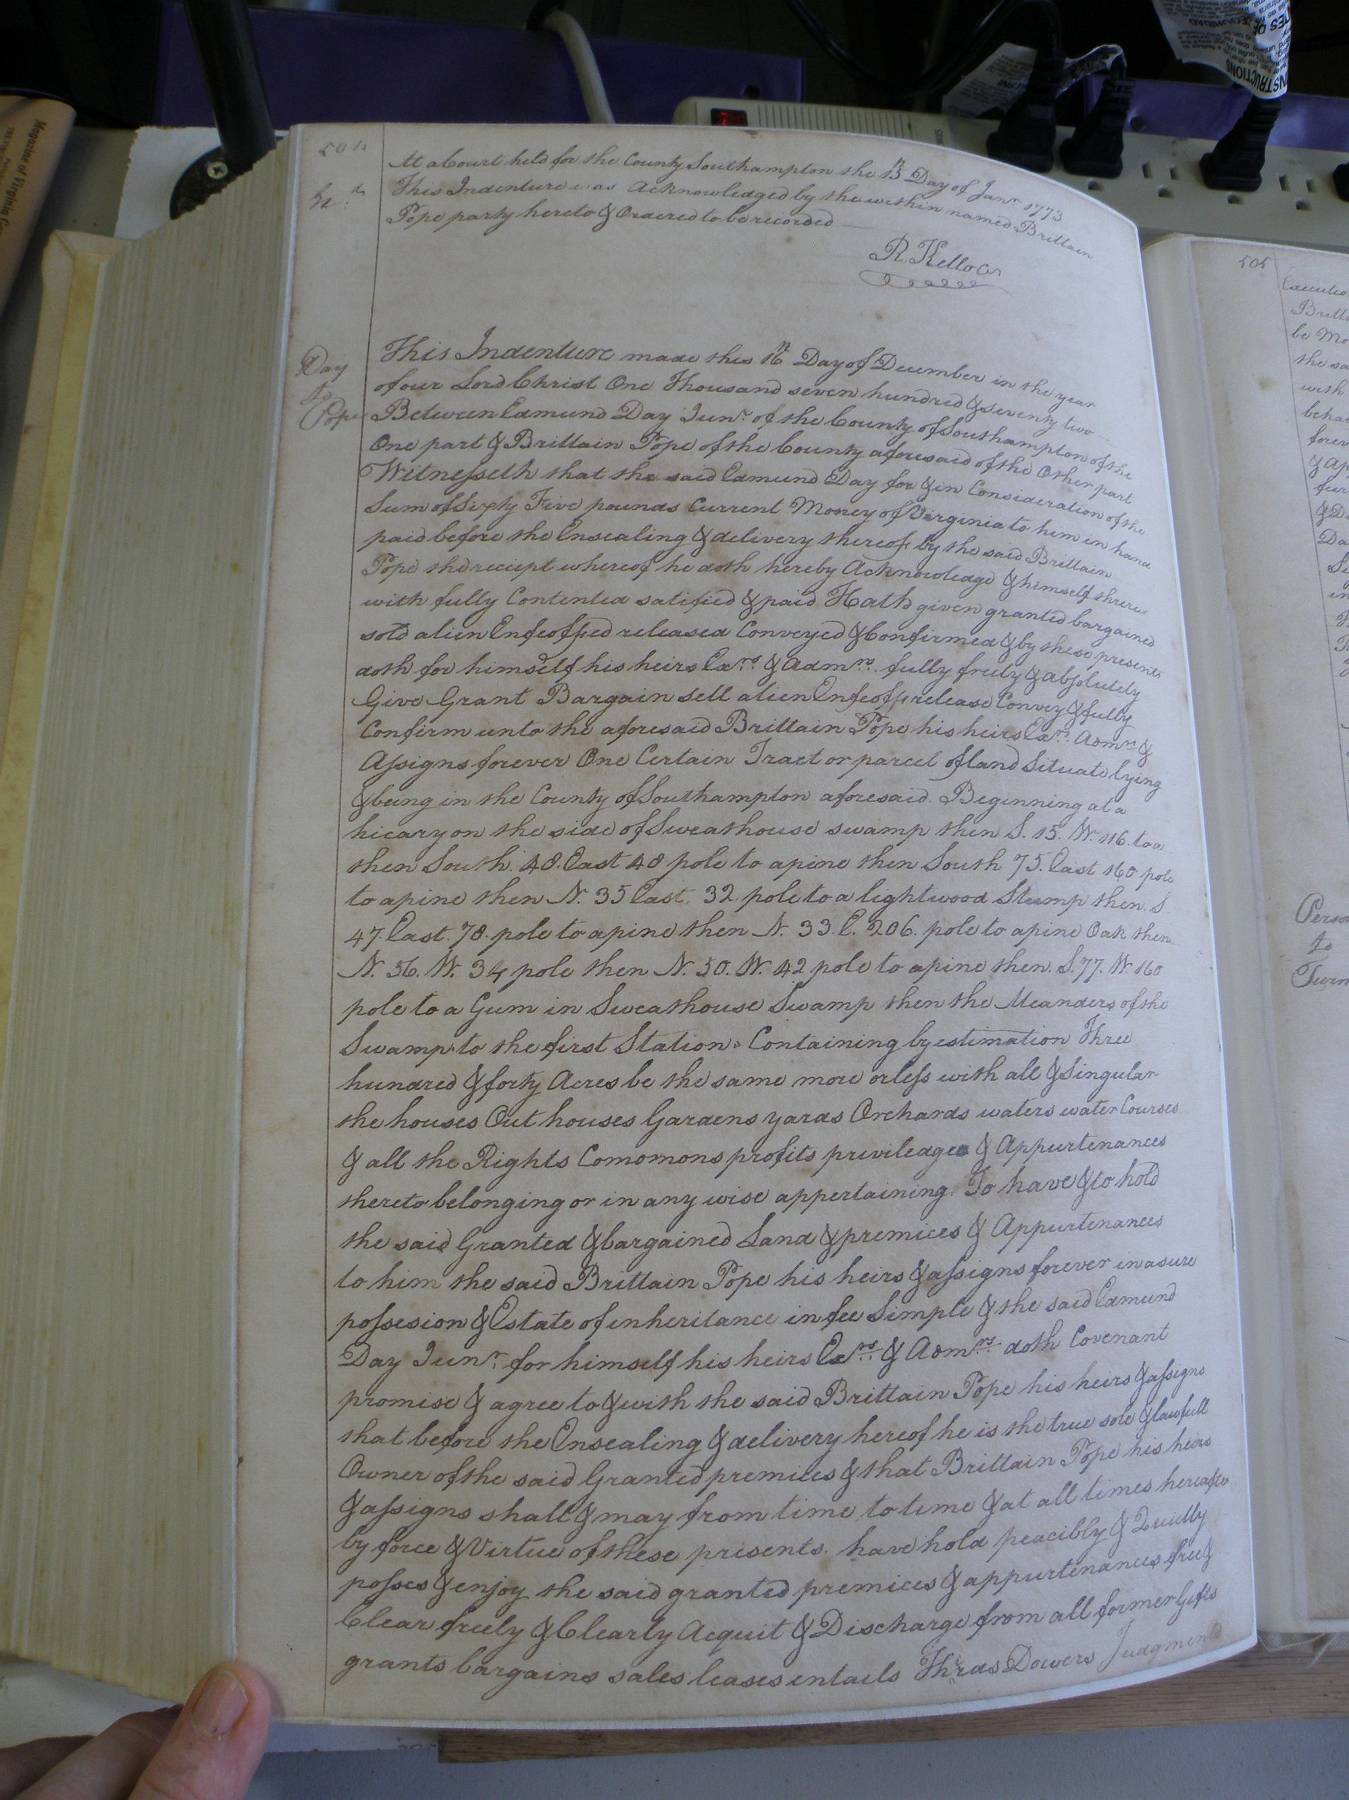 504
At a Court held for the County Southampton the 13th Day of Janry 1773
This Indenture was Acknowledged by the within named Brittain
Pope party hereto & Ordered to be recorded
R. Kello Cr
Day
to
Pope
This Indenture made this 16th Day of December in the year
of our Lord Christ One Thousand seven hundred & seventy two
Between Edmund Day Junr. of the County of Southampton of the
One part & Brittain Pope of the County aforesaid of the Other part
Witnesseth that the said Edmund Day for & in Consideration of the
Sum of Sixty Five pounds Current Money of Virginia to him in hand
paid before the Ensealing & delivery thereof by the said Brittain
Pope the reciept whereof he doth hereby Acknowledge & himself there
with fully Contented satified & paid Hath given granted bargained
sold alien Enfeoffed released Conveyed & Confirmed & by these presents
doth for himself his heirs Exrs. & Admrs. fully freely & absolutely
Give Grant Bargain sell alien Enfeoff release Convey & fully
Confirm unto the aforesaid Brittain Pope his heirs Exrs. Admrs &
Assigns forever One Certain Tract or parcel of land Situate lying
& being in the County of Southampton aforesaid. Beginning at a
hicary on the side of Sweathouse swamp then S. 15. W. 116. to a
then South. 48. East 48 pole to a pine then South 75. East 160 pole
to a pine then N. 35 East. 32 pole to a lightwood Stump then. S
47. East. 78. pole to a pine then N. 33. E. 206. pole to a pine Oak then
N. 56. W. 34 pole then N. 50. W. 42 pole to a pine then. S. 77. W 160
pole to a Gum in Sweathouse Swamp then the Meanders of the
Swamp to the first Station. Containing by estimation Three
hundred & forty Acres be the same more or less with all & Singular
the houses Out houses Gardens yards Orchards waters water Courses
& all the Rights Comomons profits priviledges & Appurtenances
thereto belonging or in any wise appertaining. To have & to hold
the said Granted & bargained Land & premices & Appurtenances
to him the said Brittain Pope his heirs & assigns forever in a sure
possesion & Estate of inheritance in fee Simple & the said Edmund
Day Junr. for himself his heirs Exrs. & Admrs. doth Covenant
promise & agree to & with the said Brittain Pope his heirs & assigns
that before the Ensealing & delivery hereof he is the true sole & lawfull
Owner of the said Granted premices & that Brittain Pope his heirs
& assigns shall & may from time to time & at all times hereafter
by force & Virtue of these presents. have hold peacibly & Quietly
posses & enjoy the said granted premices & appurtenances free &
Clear freely & Clearly Acquit & Discharge from all former Gifts
grants bargains sales leases entails Thirds Dowers Judgments
505
be
the
with
to
Magazine of Virginia
INSTRUCTIONS